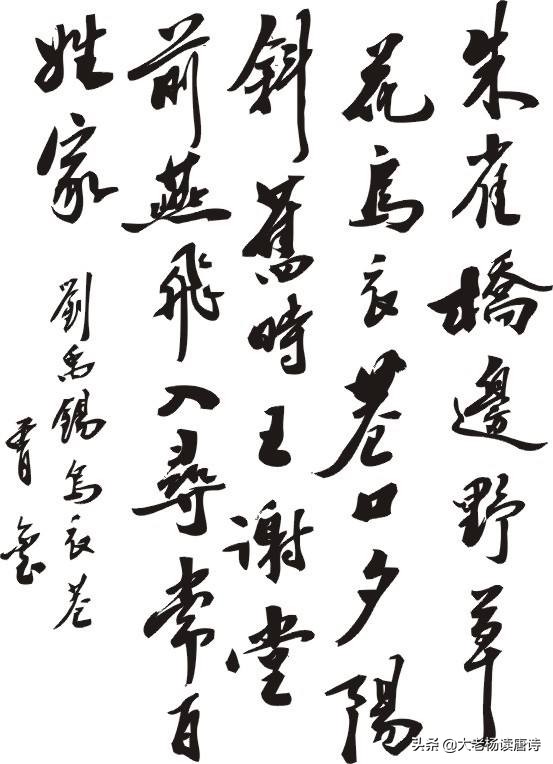 朱雀橋邊野草
花烏衣巷口夕陽
斜舊時王謝堂
前燕飛入尋常百
姓家
劉禹錫烏衣巷
头条 @大老杨读唐诗